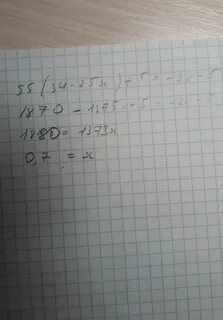 55(34-25x)+5=-2x-5
1870-1375x+5=-2x-5
1880=1373x
0,7=x